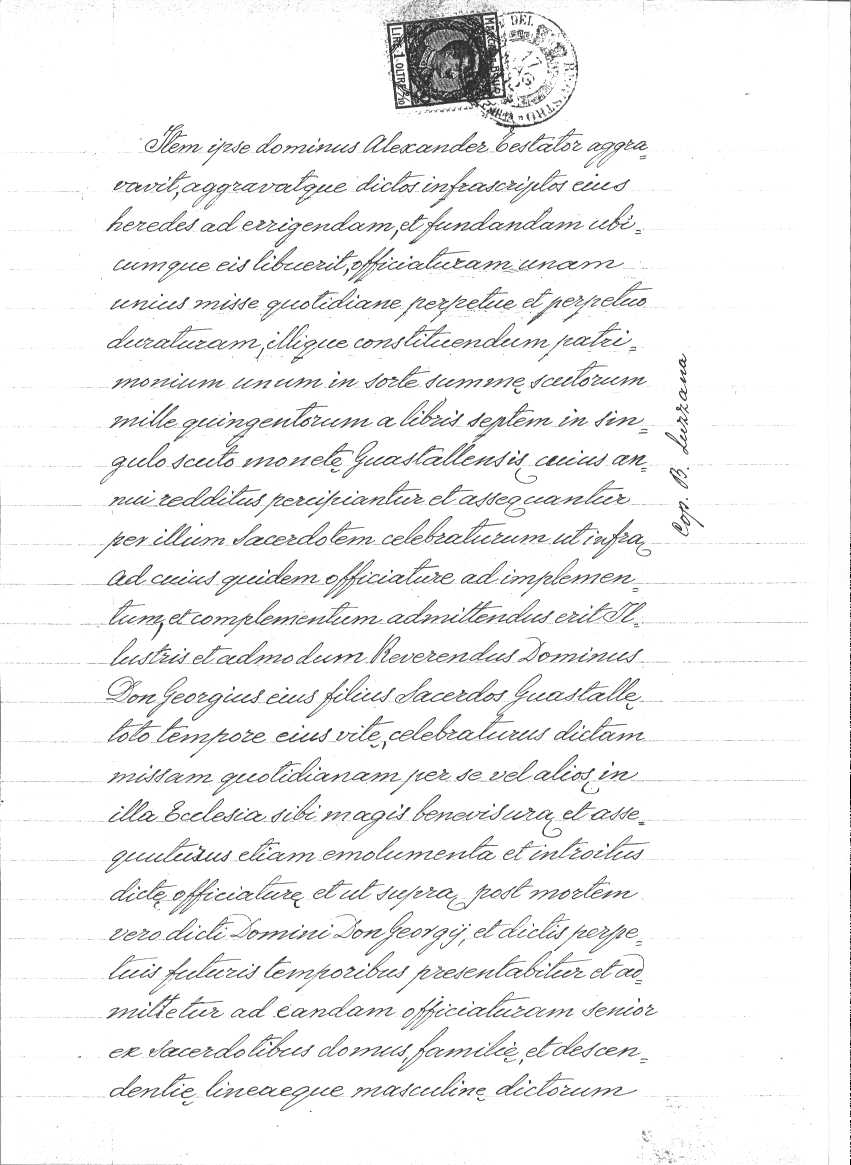 LIRE 1 OLTRE 2/10
MARCA DA BOLLO
DEL REGISTRO
17
Item ipse dominus Alexander Testator aggra=
vavit, aggravatque dictos infrascriptos eius
heredes ad errigendam, et fundandam ubi=
cumque eis libuerit, officiaturam unam
unius misse quotidiane perpetue et perpetuo
duraturam, illique constituendum patri=
monium unum in sorte summę scutorum
mille quingentorum a libris septem in sin=
gulo scuto monetę Guastallensis, cuius an=
nui redditus percipiantur et assequantur
per illum Sacerdotem celebraturum ut infra,
ad cuius quidem officiature ad implemen=
tum, et complementum admittendus erit Il=
lustris et admodum Reverendus Dominus
Don Georgius eius filius Sacerdos Guastallę
toto tempore eius vitę, celebraturus dictam
missam quotidianam per se vel alios, in
illa Ecclesia sibi magis benevisura, et asse=
quuturus etiam emolumenta et introitus
dictę officiaturę et ut supra, post mortem
vero dicti Domini Don Georgij, et dictis perpe=
tuis futuris temporibus presentabitur et ad=
mittetur ad eandam officiaturam senior
ex Sacerdotibus domus, familię, et descen=
dentię, lineaeque masculinę dictorum
Cop. B. Luzzana